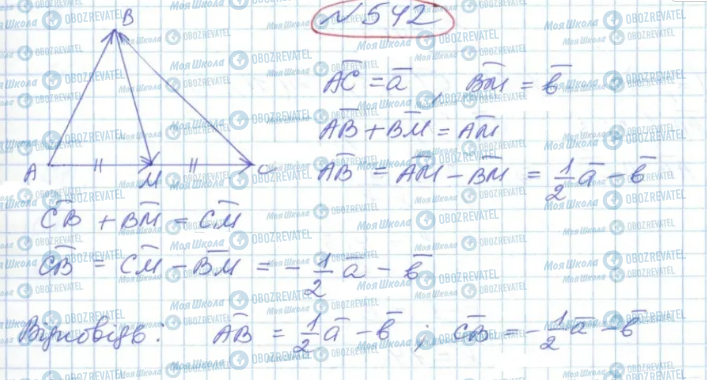 №542
B
A M C
$\overline{AC} = \overline{a}$, $\overline{BM} = \overline{b}$
$\overline{AB} + \overline{BM} = \overline{AM}$
$\overline{AB} = \overline{AM} - \overline{BM} = \frac{1}{2}\overline{a} - \overline{b}$
$\overline{CB} + \overline{BM} = \overline{CM}$
$\overline{CB} = \overline{CM} - \overline{BM} = -\frac{1}{2}\overline{a} - \overline{b}$
Відповідь: $\overline{AB} = \frac{1}{2}\overline{a} - \overline{b}$; $\overline{CB} = -\frac{1}{2}\overline{a} - \overline{b}$
Моя Школа OBOZREVATEL